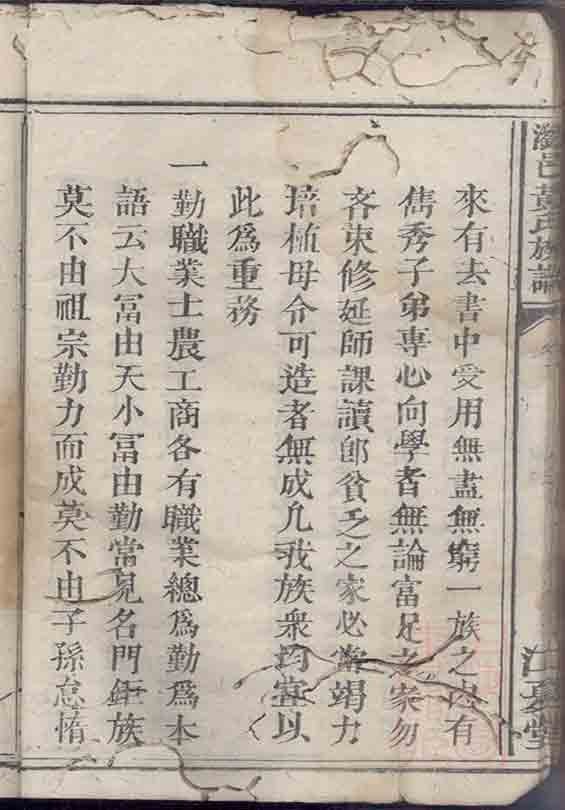 邑黃氏族譜
江夏堂
來有去書中受用無盡無窮一族之內有
雋秀子弟專心向學者無論富足之家勿
吝束修延師課讀卽貧乏之家必當竭力
培植毋令可造者無成凢我族衆均宜以
此爲重務
一勤職業士農工商各有職業總爲勤爲本
語云大冨由天小冨由勤常見名門鉅族
莫不由祖宗勤力而成莫不由子孫怠惰